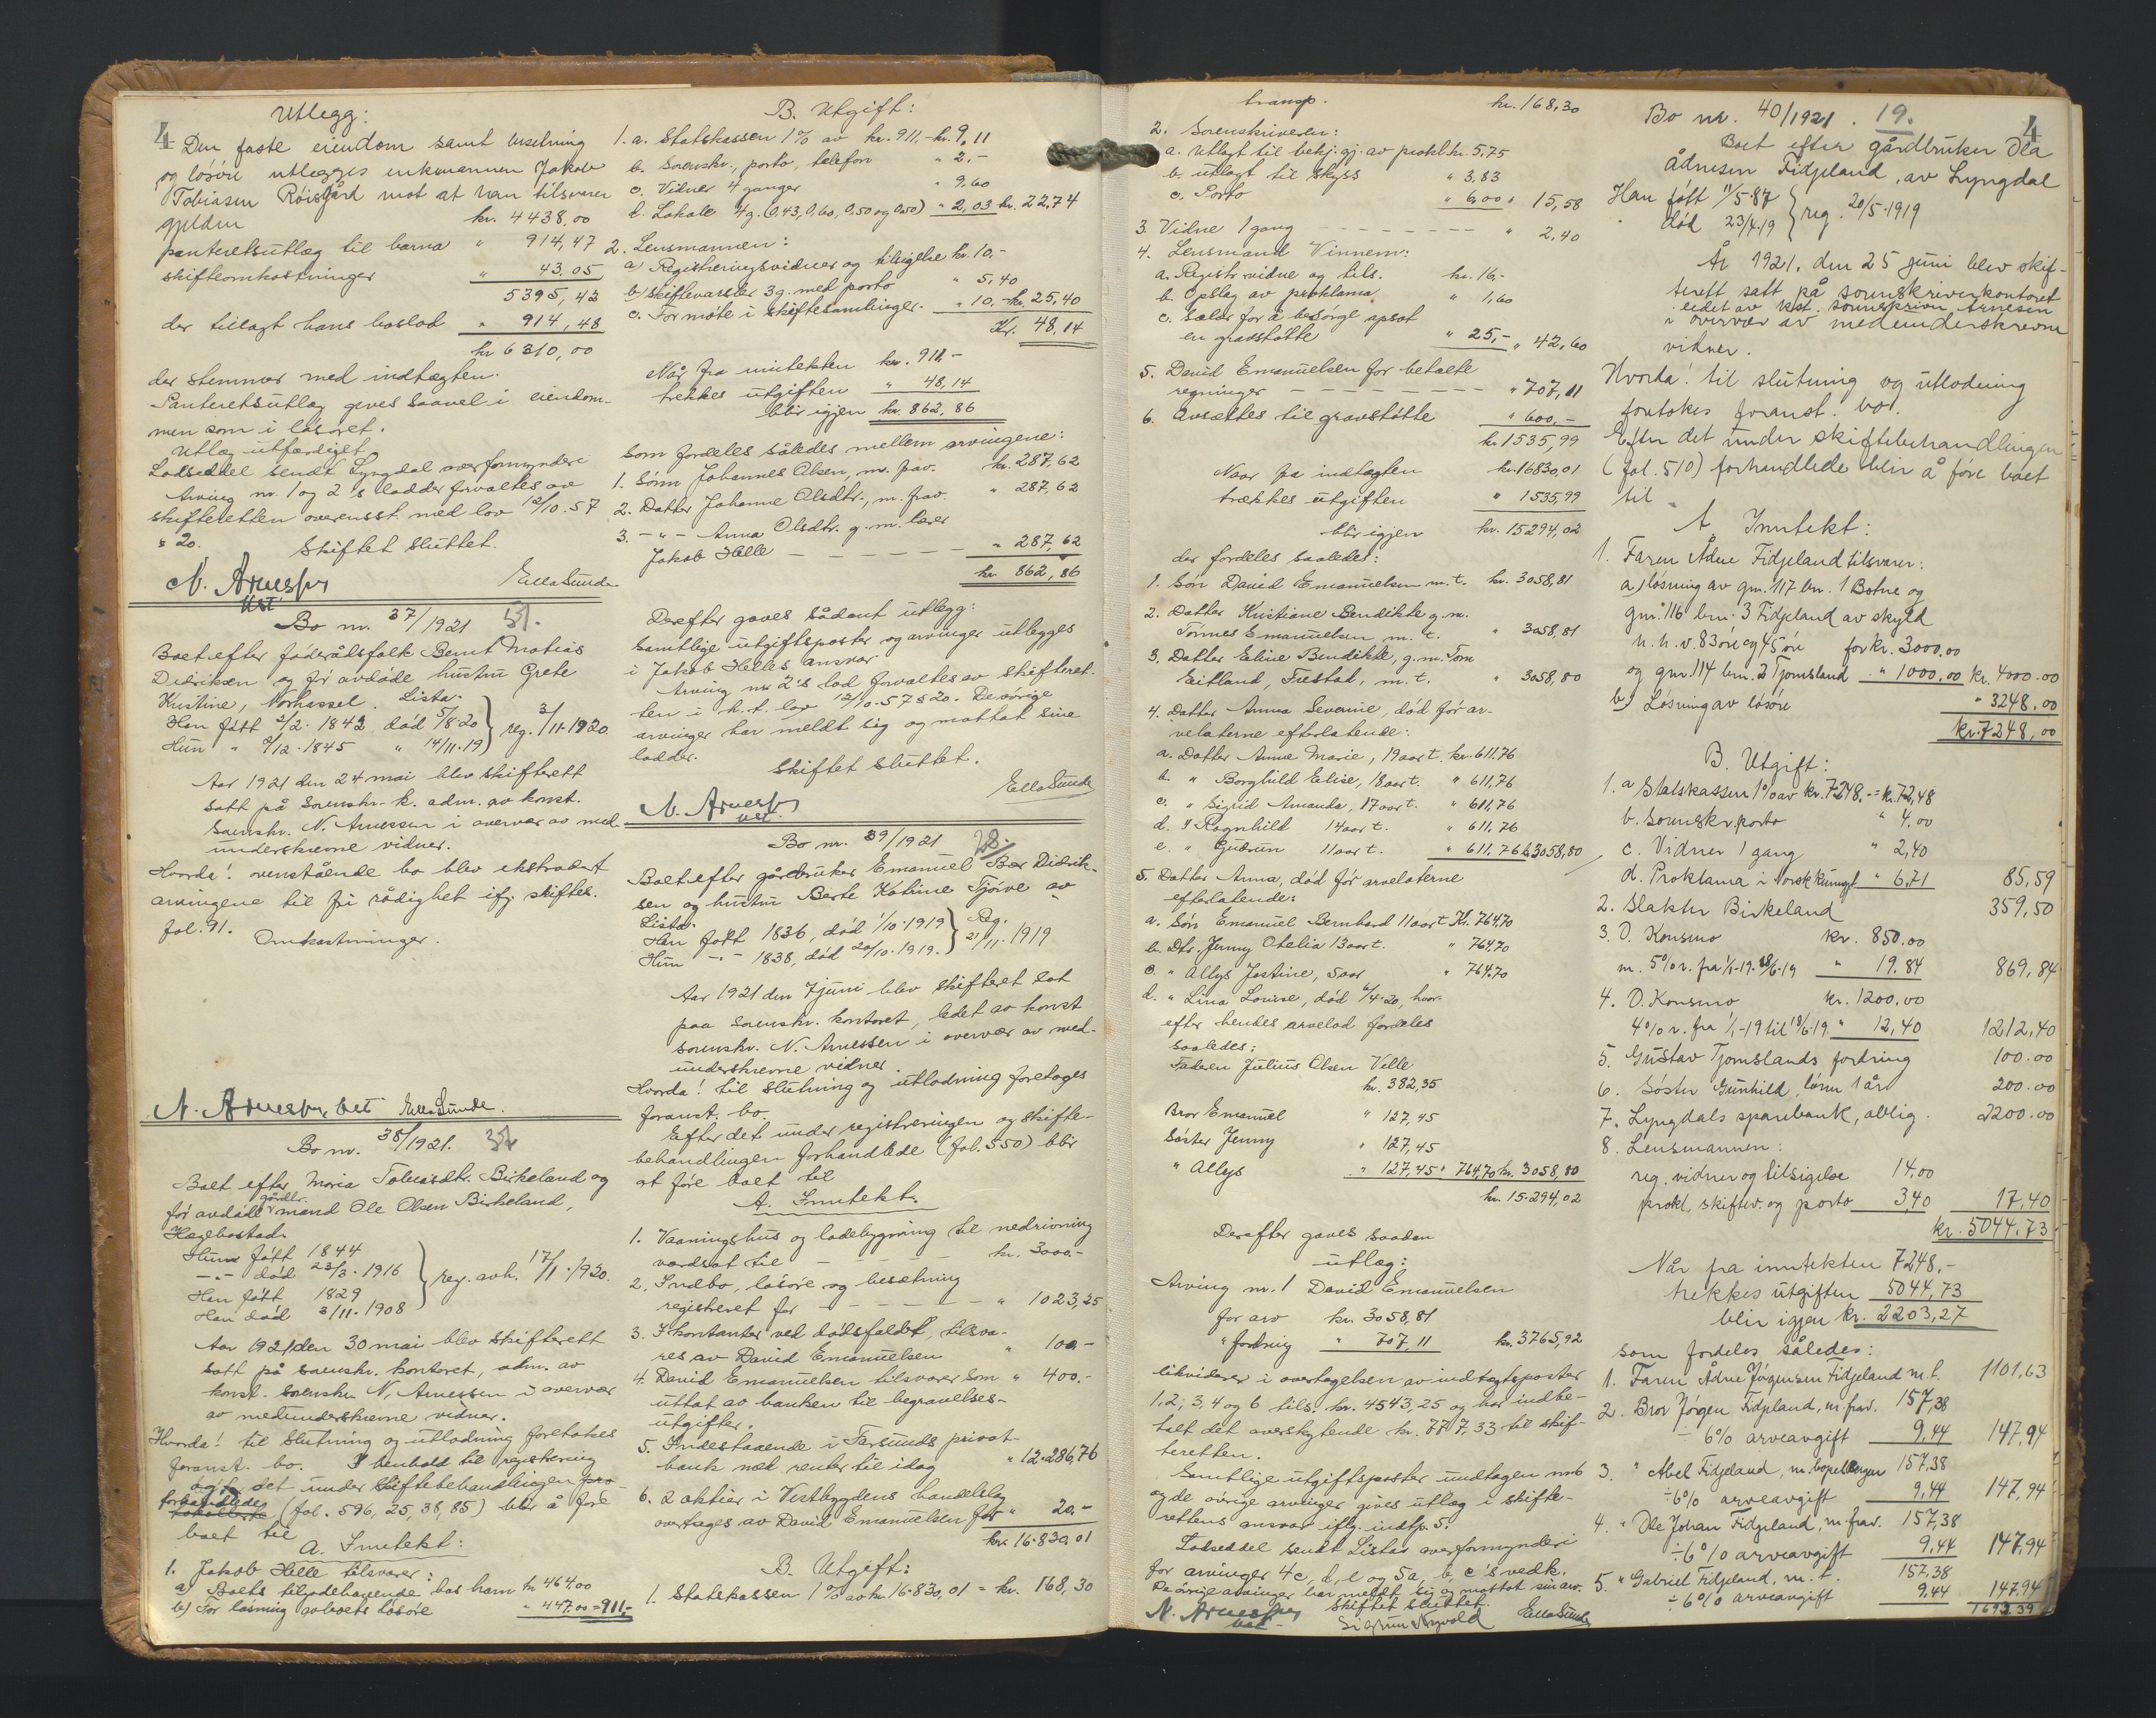 4
Utlegg:
Den faste eiendom samt besetning
og løsøre utlegges enkemannen Jakob
Tobiasen Röisgård mot at han tilsvarer
gjelden kr. 4438,00
panteretsutlæg til barna " 914,47
skifteomkostninger " 43,05
5395,42
der tillagt hans boslod " 914,48
kr 6310,00
der stemmer med indtægten.
Panteretsutlæg geves saavel i eiendom-
men som i løsøret.
Utlæg utfærdiget
Lodseddel sendt Lyngdal overformynderi
Arving nr. 1 og 2's lodder forvaltes av
skifteretten overensst. med lov 12/10.57
§ 20.
Skiftet sluttet.
N. Arnessen
kst.
Ella Sunde
Bo nr. 37/1921
Boet efter föderådsfolk Bernt Matias
Didriksen og för avdöde hustru Grete
Kristine, Vorhassel. Lista.
Han fött 2/2. 1842 död 5/8.20
Hun " 9/12.1845 " 14/11.19 } reg. 3/11.1920.
Aar 1921 den 24 mai blev skifterett
satt på Sorenskr. k. adm. av konst.
Sorenskr. N. Arnessen i overvær av med-
underskrevne vidner.
Hvorda! ovenstående bo blev ekstradert
arvingene til fri rådighet ifg. skiftes.
fol. 91.
Omkostninger.
N. Arnessen kst Ella Sunde.
Bo nr. 38/1921.
Boet efter Maria Tobiasdtr. Birkeland og
för avdöde gårdbr. mand Ole Olsen Birkeland,
Hægebostad.
Hun fött 1844
-"- död 23/3.1916
Han fött 1829
Han död 3/11.1908 } reg. avh. 17/11./920.
Aar 1921 den 30 mai blev skifterett
satt på sorenskr. kontoret, adm. av
konst. sorenskr N. Arnessen i overvær
av medunderskrevne vidner.
Hvorda! til slutning og utlodning foretokes
foranst. bo. I henhold til registrering
og det under skiftebehandlingen
forhandlede (fol. 596, 25, 38, 85) blir å före
boet til
A. Inntekt:
1. Jakob Helle tilsvarer:
a) Boets tilgodehavende hos ham kr 464.00
b) For løsning av boets løsøre " 447.00 = 911,-
B. Utgift:
1. a. Statskassen 1% av kr. 911,- kr. 9,11
b. Sorenskr., porto, telefon " 2,-
c. Vidner 4 ganger " 9,60
d. Lokale 4g. (0,43, 0,60, 0,50 og 0,50) " 2,03 kr. 22,74
2. Lensmannen:
a) Registreringsvidner og tilsigelse kr. 10.-
b) Skiftevarsler 3g. med porto " 5,40
c. For møte i skiftesamlinger. " 10,- kr. 25,40
Kr. 48,14
Når fra inntekten kr. 911.-
trekkes utgiften " 48,14
blir igjen kr. 862,86
som fordeles således mellem arvingene:
1. Sönn Johannes Olsen, m. frav. kr. 287,62
2. Datter Johanne Olsdtr., m. frav. " 287,62
3. -"- Anna Olsdtr. g. m. lærer
Jakob Helle " 287,62
kr 862,86
Derefter gaves sådant utlegg:
Samtlige utgiftsposter og arvinger utlegges
i Jakob Helles ansvar.
Arving nr 2's lod forvaltes av skifteret-
ten i h. t. lov 12/10.57 § 20. De övrige
arvinger har meldt sig og mottat sine
lodder.
Skiftet sluttet.
N. Arnessen
kst.
Ella Sunde
Bo nr. 39/1921 28.
Boet efter gårdbruker Emanuel Bær Didrik-
sen og hustru Berte Katrine Tjörve av
Lista.
Han fött 1836, död 1/10.1919
Hun -"- 1838, död 20/10.1919. } Reg. 21/11.1919
Aar 1921 den 7 juni blev skifteret sat
paa sorenskr. kontoret, ledet av konst
sorenskr. N. Arnessen i overvær av med-
underskrevne vidner.
Hvorda! til slutning og utlodning foretages
foranst. bo.
Efter det under registreringen og skifte-
behandlingen forhandlede (fol. 550) blir
at före boet til
A. Inntekt.
1. Vaaningshus og ladebygning til nedrivning
værdsat til kr. 3000.-
2. Indbo, løsøre og besætning
registreret for " 1023,25
3. I kontanter ved dödsfaldet, tilsva-
res av David Emanuelsen " 100,-
4. David Emanuelsen tilsvarer som " 400.-
uttat av banken til begravelses-
utgifter.
5. Indestaaende i Farsunds privat-
bank med renter til idag " 12.286,76
6. 2 aktier i Vestbygdens handelslag
overtages av David Emanuelsen for " 20.-
kr. 16.830,01
B. Utgift:
1. Statskassen 1% av kr 16.830,01 = kr. 168,30
transp. kr. 168,30
2. Sorenskriveren:
a. utlagt til bekj.gj. av prokl. kr. 5,75
b. utlagt til skyss " 3,83
c. Porto " 6,00 " 15,58
3. Vidne 1 gang " 2,40
4. Lensmand Vinnem:
a. Registr. vidne og tils. kr. 16,-
b. Opslag av proklama " 1,60
c. Salær for å besörge opsat
en gravstötte " 25,- " 42,60
5. David Emanuelsen for betalte
regninger " 707,11
6. Avsættes til gravstøtte " 600,-
kr. 1535,99
Naar fra indtægten kr. 16830,01
trækkes utgiften " 1535,99
blir igjen kr. 15294,02
der fordeles saaledes:
1. Sön David Emanuelsen m. t. kr. 3058,81
2. Datter Kristiane Bendikte g. m.
Tönnes Emanuelsen m. t. " 3058,81
3. Datter Eline Bendikte, g. m. Tom
Eitland, Frestad, m. t. " 3058,80
4. Datter Anna Severine, död för ar-
velaterne efterlatende:
a. Datter Anne Marie, 19 aar t. kr. 611,76
b. " Borghild Elise, 18 aar t. " 611,76
c. " Sigrid Amanda, 17 aar t. " 611,76
d. " Ragnhild 14 aar t. " 611,76
e. " Gudrun 11 aar t. " 611,76 kr. 3058,80
5. Datter Anna, död för arvelaterne
efterlatende:
a. Sön Emanuel Bernhard 11 aar t. Kr. 764,70
b. Dtr. Jenny Otelia 13 aar t. " 764,70
c. " Allys Jostine, 5 aar " 764,70
d. " Lina Lovise, död 6/4.20, hvor-
efter hendes arvelod fordeles
saaledes:
Faderen Julius Olsen Velle
kr. 382,35
Bror Emanuel " 127,45
Söster Jenny " 127,45
" Allys " 127,45 " 764,70 kr. 3058,80
kr. 15.294,02
Derefter gaves saadan
utlæg:
Arving nr. 1 David Emanuelsen
for arv kr. 3058,81
" fordring " 707,11 kr. 3765,92
likviderer i overtagelsen av indtægtsposter
1, 2, 3, 4 og 6 tils. kr. 4543,25 og har indbe-
talt det overskytende kr. 777,33 til skif-
teretten.
Samtlige utgiftsposter undtagen nr 6
og de övrige arvinger gives utlæg i skifte-
rettens ansvar iflg. indtp. 5.
Lodseddel sendt Listas overformynderi
for arvinger 4c, d, e og 5a, b, c's vedk.
De övrige arvinger har meldt sig og mottat sin arv.
Skiftet sluttet.
N. Arnessen
kst
Ella Sunde
Bo nr. 40/1921. 19.
4
Boet efter gårdbruker Ola
Ådnesen Fidjeland, av Lyngdal
Han fött 11/5-87
" död 23/4.19 } reg. 20/5.1919
År 1921, den 25 juni blev skif-
terett satt på sorenskriverkontoret
ledet av kst. sorenskriver Arnesen
i overvær av medunderskrevne
vidner.
Hvorda! til slutning og utlodning
foretokes foranst. bo.
Efter det under skiftebehandlingen
(fol. 510) forhandlede blir å före boet
til
A Inntekt:
1. Faren Ådne Fidjeland tilsvarer:
a) løsning av gnr. 117 bnr. 1 Botne og
gnr. 116 bnr. 3 Fidjeland av skyld
h. h. v. 83 öre og 45 öre for kr. 3000.00
og gnr. 114 bnr. 2 Tjomsland " 1000,00 kr. 4000.00
b) Løsning av løsøre " 3248.00
kr. 7248,00
B. Utgift:
1. a Statskassen 1% av kr. 7248.- = kr. 72,48
b. Sorenskr. porto " 4,00
c. Vidner 1 gang " 2,40
d. Proklama i Norsk Kunngj. " 6,71 85,59
2. Slakter Birkeland 359,50
3. O. Konsmo kr. 850.00
m. 5% r. fra 1/1-19-18/6-19 " 19.84 869,84
4. O. Konsmo kr. 1200.00
4% r. fra 1/1-19 til 18/6-19 " 12,40 1212,40
5. Gustav Tjomslands fordring 100.00
6. Söster Gunhild, lönn 1 år 200.00
7. Lyngdals sparebank, oblig. 2200.00
8. Lensmannen:
reg. vidner og tilsigelse 14,00
prokl, skiftev. og porto 3,40 17,40
kr. 5044,73
Når fra inntekten 7248,-
trekkes utgiften 5044,73
blir igjen kr. 2203,27
som fordeles således:
1. Faren Ådne Jörgensen Fidjeland m. t. 1101,63
2. Bror Jörgen Fidjeland, m. frav. 157,38
÷ 6% arveavgift 9,44 147,94
3. " Abel Fidjeland, m. 157,38
÷ 6% arveavgift 9,44 147,94
4. " Ole Johan Fidjeland, m. frav. 157,38
÷ 6% arveavgift 9,44 147,94
5. " Gabriel Fidjeland, m. t. 157,38
÷ 6% arveavgift 9,44 147,94
1693,39